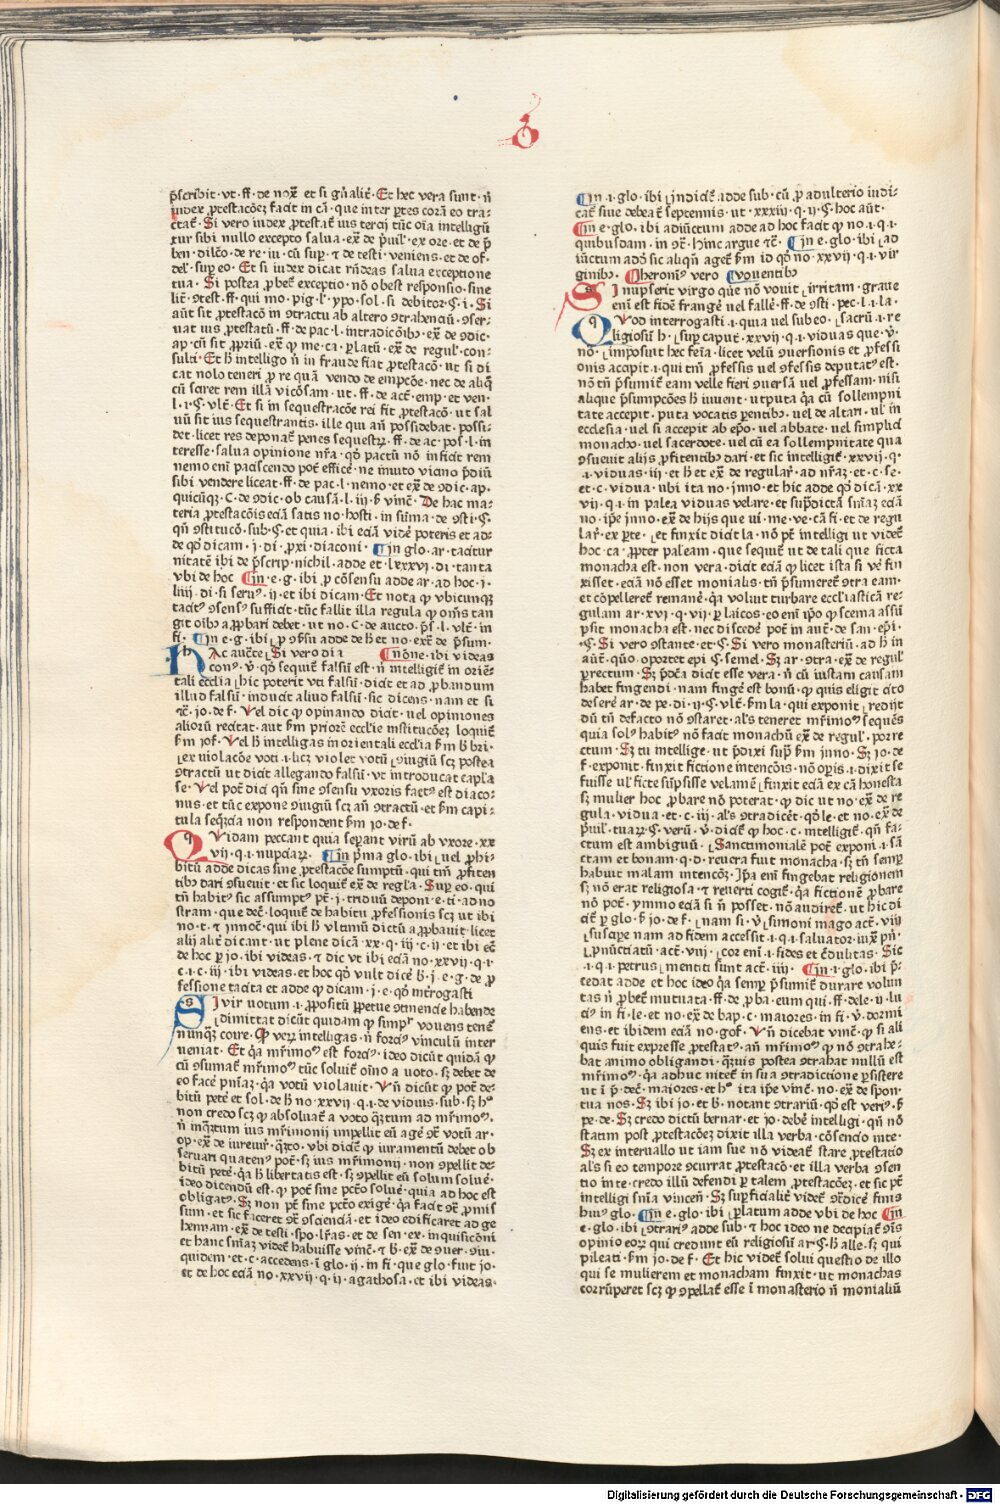 p̄scribit·vt·ff·de nox̄ et si gn̄alit᷑·Et hec vera sunt·n̄
iudex ꝓtestacōeꝫ facit in cā·que inter ꝑtes corā eo tra-
ctat᷑·Si vero iudex ꝓtestat᷑ ius tercij tūc oīa intelligū
tur sibi nullo excepto salua·
del᷑ suꝑ eo·Et si iudex dicat rn̄deas salua exceptione
tua·Si postea ꝓbet᷑ exceptio·nō obest responsio·sine
lit᷑·ꝯtest·ff·qui mo·pig·l᷑·ypo·sol·si debitor·ꝯ·i·Si
aūt sit ꝓtestacō in ꝯtractu ab altero ꝯtrahenciū·ꝯser-
uat ius ꝓtestatū·ff·de pac·l·intradicōibꝯ·ex᷑ de ꝯdic·
sulti·Et h̄ intelligo n̄ in fraude fiat ꝓtestacō·ut si di
cat nolo teneri ꝓ re quā vendo de empcōe·nec de aliqͦ
cū sciret rem illā vicōsam·ut·ff·de act᷑·emp·et ven·
l·i·ꝯ·vlt᷑·Et si in sequestracōe rei fit ꝓtestacō·ut sal
uū sit ius sequestrantis·ille qui an̄ possidebat·possi-
det·licet res deponat᷑ penes sequestꝝ·ff·de ac·pos·l·in
teresse·salua opinione nr̄a·qͦ pactū nō inficit rem
nemo enī paciscendo pot᷑ effice᷑·ne inuito vicino p̄diū
sibi vendere liceat·ff·de pac·l·nemo·et ex᷑ de ꝯdic·ap·
quicūqꝫ·C·de ꝯdic·ob causā·l·iij·
teria ꝓtestacōis eciā satis no·hosti·in sūma·de ꝯsti·ꝯ·
qn̄ ꝯstitucō·sub·ꝯ·et quia·ibi eciā vide᷑ poteris et ad-
de qͦ dicam·j·di·ꝓxi·diaconi·In glo·ar·tacitur
nitatē ibi de p̄scrip·nichil·adde et·lxxxvi·di·tanta
vbi de hoc In·e·g·ibi ꝓ cōsensu adde ar·ad hoc·j·
liiij·di·si seruꝯ·ij·et ibi dicam·Et nota ꝙ vbicunqꝫ
tacitꝯ ꝯsensꝯ sufficit·tūc fallit illa regula ꝙ om̄s tan
git oībꝯ a ꝓbari debet·ut no·C·de aucto·p̄s·l·vlt᷑·in
fi· In e·g·ibi·ꝓ ꝯsensu adde de h̄ et no·ex᷑ de p̄sum·
hAc auct᷑e Si vero dia none·ibi videas
conꝯ·v᷑·qͦ sequit᷑ falsū est·n̄ intelligit᷑ in oriē-
tali ecclīa hic poterit vti falsū·dicit et ad ꝓbandum
illud falsū·inducit aliud falsū·sic dicens·nam et si
ꝛc᷑·jo·de f·Vel dic ꝙ opinando dicit·vel opiniones
aliorū recitat·aut s̄m priorē ecclīe institucōeꝫ loquit᷑
s̄m jo·f·Vel h̄ intelligas in orientali ecclīa s̄m
ex violacōe voti·i·licꝫ violet votū ꝯiugiū scꝫ postea
ꝯtractū ut dicit allegando falsū·vt introducat capl̄a
se·Vel pot᷑ dici qn̄ sine ꝯsensu vxoris factꝯ est diaco-
nus·et tūc expone ꝯiugiū scꝫ an̄ ꝯtractū·et s̄m capi-
tula seqꝫcia non respondent s̄m jo·de f·
QVidam peccant quia seꝑant virū ab vxore·xx
vij·q·i·nupciaꝝ· In p̄ma glo·ibi·uel ꝓhi-
bitū adde dicas sine ꝓtestacōe sumptū·qui tn̄ ꝓfiten
tibꝯ dari ꝯsueuit·et sic loquit᷑ ex᷑ de regl̄a·Suꝑ eo·qui
tn̄ habitꝯ sic assumptꝯ pt᷑·j·triduū deponi·e·ti·ad no
stram·que dec᷑·loquit᷑ de habitu ꝓfessionis scꝫ ut ibi
no·t·et jnnoc᷑·qui ibi h̄ vltimū dictū a ꝓbauit·licet
alij alit᷑ dicant·ut plene dicā·xx·q·iij·c·ij·et ibi ec᷑
de hoc ꝑ jo·ibi videas·et dic vt ibi eciā no·xxvij·q·i·
c·i·c·iij·ibi videas·et hoc qͦ vult dice᷑ h̄·j·e·g·de ꝓ
fessione tacita et adde ꝙ dicam·j·e·qͦ int᷑rogasti
SI vir uotum·i·ꝓpositū ꝑpetue ꝯtinencie habende
dimittat dicūt quidam ꝙ simpꝉ vouens tenet᷑
nunqꝫ coire·Qͦ veꝝ intelligas·n̄ forciꝯ vinculū inter
ueniat·Et qͣ mr̄imoꝯ est forciꝯ·ideo dicūt quidā ꝙ
cū ꝯsumat᷑ mr̄imoꝯ tūc soluit᷑ oīno a uoto·sꝫ debet de
eo face᷑ pn̄iaꝫ·qͣ votū violauit·Vn̄ dicūt ꝙ pot᷑ de-
bitū pete᷑ et sol·de h̄ no·xxvij·q·i·de viduis·sub·sꝫ hꝯ
non credo scꝫ ꝙ absoluat᷑ a voto qꝫtum ad mr̄imoꝯ·
n̄ inqꝫtum ius mr̄imonij impellit eū age᷑ ꝯt᷑ votū ar·
op·ex᷑ de iureiur·qͣto·vbi dicit᷑ ꝙ iuramentū debet ob
seruari quatenꝯ pot᷑·sꝫ ius mr̄imonij·non ꝯpellit de-
bitū pete᷑·qͣ h̄ libertatis est·sꝫ ꝯpellit eū solum solue᷑·
ideo dicendū est·ꝙ pot᷑ sine pctō solue᷑·quia ad hoc est
obligatꝯ·Sꝫ non pt᷑ sine pctō exige᷑·qͣ facit ꝯt᷑ ꝓmis
sum·et sic faceret ꝯt᷑ ꝯscienciā·et ideo edificaret ad ge
hennam·ex᷑ de testi·spo·lr̄as·et de sen·ex·inquisicōni
et hanc sn̄iaꝫ videt᷑ habuisse vinc᷑·et b̄·ex᷑ de ꝯuer·ꝯiu·
quidem·et·c·accedens·ī glo·ij·in fi·que glo·fuit jo·
et de hoc eciā no·xxvij·q·ij·agathosa·et ibi videas·
In·i·glo·ibi·indicit᷑ adde sub·cū ꝓ adulterio indi-
cat᷑ siue debeat᷑ septennis·ut·xxxiij·q·ij·ꝯ·hoc aūt·
In e·glo·ibi adiūctum adde ad hoc facit ꝙ no·i·q·i·
quibusdam·in ꝯt᷑·hinc argue ꝛc᷑· In e·glo·ibi·ad
iūctum adō sic aliqn̄ aget᷑ s̄m id qͦ no·xxvij·q·i·vir
ginibꝯ· heronimꝯ vero vouentibꝯ
SI nupserit virgo que nō vouit irritam·graue
enī est fidē frange᷑ uel falle᷑·ff·de ꝯsti·pec·l·i·la·
QVod interrogasti·i·quia vel sub eo·sacrū·i·re
ligiosū h̄·suꝑ caput·xxvij·q·i·viduas que·v᷑·
nō·imposunt hec feīa·licet velū ꝯuersionis et ꝓfessi
onis accipit·i·qui tn̄ ꝓfessis uel ꝯfessis deputatꝯ est·
nō tn̄ p̄sumit᷑ eam velle fieri ꝯuersā uel ꝓfessam·nisi
alique p̄sumpcōes h̄ iuuent·utputa qͣ cū sollempni
tate accepit·puta vocatis ꝑentibꝯ·uel de altari·ul᷑ in
ecclesia·vel si accepit ab ep̄o·vel abbate·vel simplici
monacho·vel sacerdote·vel cū ea sollempnitate qua
ꝯsueuit alijs ꝓfitentibꝯ dari·et sic intelligit᷑·xxvij·q·
·i·viduas·iij·et h̄ et ex᷑ de regular᷑·ad nr̄aꝫ·et·c·se·
et·c·vidua·ubi ita no·jnno·et hic adde qͦ dicā·xx
vij·q·i·in palea viduas velare·et sup̄dictā sn̄iaꝫ eciā
no·ip̄e jnno·ex᷑ de hijs que ui·me·ve·cā fi·et de regu
lar᷑·ex ꝑte·et finxit dicit la·nō pt᷑ intelligi ut videt᷑
hoc·ca·ꝓpter paleam·que sequit᷑ ut de tali que ficta
monacha est·non vera·dicit eciā ꝙ licet ista si ve᷑ fin
xisset·eciā nō esset monialis·tn̄ p̄sumeret᷑ ꝯtra eam·
et cōpelleret᷑ remane᷑·qͣ voluit turbare eccl̄iasticā re-
gulam·ar·xvi·q·vij·ꝑ laicos·eo enī ip̄o ꝙ scema assū
psit monacha est·nec discede᷑ pot᷑·in aut᷑·de san·ep̄i·
·ꝯ·Si vero ꝯstante·et·ꝯ·Si vero monasteriū·ad h̄ in
aūt᷑·quō·oportet epi·ꝯ·semel·Sꝫ ar·ꝯtra·ex᷑ de regul᷑
ꝑrectum·Sꝫ p̄dca dicit esse vera·n̄ cū iustam causam
habet fingendi·nam finge᷑ est bonū·ꝙ quis eligit cito
desere᷑·ar·de pe·di·ij·ꝯ·vlt᷑·s̄m la·qui exponit·redijt
dū tn̄ defacto nō ꝯstaret·al̄s teneret mr̄imoꝯ sequēs
quia solꝯ habitꝯ nō facit monachū ex᷑ de regul᷑·porre
ctum·Sꝫ tu intellige·ut p̄dixi sup̄ s̄m jnno·Sꝫ jo·de
f·exponit·finxit fictione intencōis·nō oꝑis·i·dixit se
fuisse ul᷑ ficte sūpsisse velamē·finxit eciā ex cā honesta
sꝫ mulier hoc ꝓbare nō poterat·ꝙ dic ut no·ex᷑ de re
gula·vidua·et·c·iij·al̄s ꝯtradicēt᷑·qͦle·et no·ex᷑ de
p̄uil᷑·tuaꝝ·ꝯ·verū·v᷑·dicit᷑ ꝙ hoc·c·intelligit᷑·qn̄ fa-
ctum est ambiguū·Sanctimonialē pot᷑ exponi·i·sā
ctam et bonam·q·d·reuera fuit monacha·sꝫ tn̄ semꝑ
habuit malam intencōeꝫ·Ip̄a enī fingebat religionem
sꝫ nō erat religiosa·et reuerti cogit᷑·qͣ fictionē ꝓbare
nō pot᷑·ymmo eciā si n̄ posset·nō audiret᷑·ut hic di
cit᷑ ꝑ glo·s̄ jo·de f·nam si·v᷑·simoni mago act᷑·viij
suscipe nam ad fidem accessit·i·q·i·saluator·iuxͣ pn̄·
pn̄uctiatū·act᷑·viij·cor enī·i·fides et c᷑dulitas·Sic
·i·q·i·petrus·mentiti sunt act᷑·iiij· In·i·glo·ibi p̄-
cedat adde et hoc ideo qͣ semꝑ p̄sumit᷑ durare volun
tas n̄ ꝓbet᷑ mutuata·ff·de ꝓba·eum qui·ff·dele·ij·lu
ciꝯ in fi·le·et no·ex᷑ de bap·c·maiores·in fi·v᷑·dormi
ens·et ibidem eciā no·gof·Vn̄ dicebat vinc᷑·ꝙ si ali
quis fuit expresse ꝓtestatꝯ·an̄ mr̄imoꝯ ꝙ nō ꝯtrahe-
bat animo obligandi·qꝫuis postea ꝯtrahat nullū est
mr̄imoꝯ·qͣ adhuc nitit᷑ in sua ꝯtradictione ꝑsistere
ut ī p̄·dec᷑·maiores·et hꝯ ita ip̄e vinc᷑·no·ex᷑ de spon·
tua nos·Sꝫ ibi jo·et b̄·notant ꝯtrariū·qͦ est verꝯ·s̄
pe·de·Sꝫ credo dictū bernar·et jo·debe᷑ intelligi·qn̄ nō
statim post ꝓtestacōeꝫ dixit illa verba·cōsencio inte·
Sꝫ ex interuallo ut iam siue nō videat᷑ stare ꝓtestacio
al̄s si eo tempore ꝯcurrat ꝓtestacō·et illa verba ꝯsen
tio inte·credo illū defendi ꝑ talem ꝓtestacōeꝫ·et sic pt᷑
intelligi sn̄ia vincen̄·Sꝫ suꝑficialit᷑ videt᷑ ꝯt᷑dice᷑ finis
huiꝯ glo· In e·glo·ibi·ꝓlatum adde vbi de hoc In
e·glo·ibi·ꝯtrariꝯ adde sub·et hoc ideo ne decipiat᷑ ꝯis
opinio eoꝝ qui credunt eū religiosū ar·ꝯ·h̄ alle·sꝫ qui
pileati·s̄m jo·de f·Et hic videt᷑ solui questio de illo
qui se mulierem et monacham finxit·ut monachas
corrūperet scꝫ ꝙ ꝯpellat᷑ esse ī monasterio n̄ monialiū
Digitalisierung gefördert durch die Deutsche Forschungsgemeinschaft - DFG